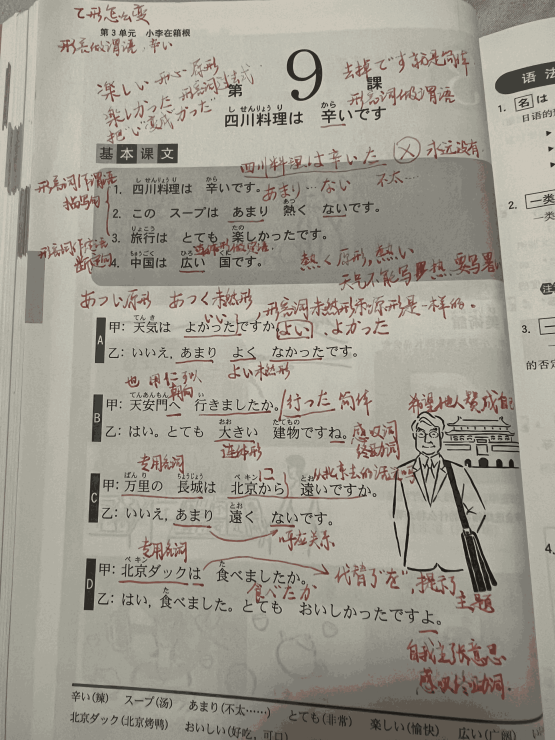 て形怎么变
第3单元 小李在箱根
形容做谓语，辛い
楽しい 形い 原形
楽しかった 形容词过去式
把"い"变成"かった"
第9課
去掉です就是简体
形容词做谓语
四川料理は 辛いです
し せんりょう り から
基本课文
四川料理は辛いた × 永远没有
形容词作谓语
描写句
1. 四川料理は 辛いです。
あまり…ない 不太…
2. この スープは あまり 熱く ないです。
3. 旅行は とても 楽しかったです。
4. 中国は 広い 国です。
熱く原形，熱い
天气不能写熱，要写暑い
あつい原形 あつく未然形
形容词未然形和原形是一样的。
A
甲: 天気は よかったですか。
よい、よかった
乙: いいえ，あまり よく なかったです。
よい未然形
B
也用に可以
甲: 天安門へ 行きましたか。
行った 简体
乙: はい。とても 大きい 建物ですね。
连体形
感叹词
终助词
希望他人赞成自己
C
专用名词
甲: 万里の 長城は 北京から 遠いですか。
に
乙: いいえ，あまり 遠く ないです。
呼应关系
D
专用名词
甲: 北京ダックは 食べましたか。
代替了"を"，提示了主题
食べたか
乙: はい，食べました。とても おいしかったですよ。
自我主张意思
感叹终助词.
辛い(辣) スープ(汤) あまり(不太……) とても(非常) 楽しい(愉快) 広い(广阔)
北京ダック(北京烤鸭) おいしい(好吃，可口)
语法
1. 名は
日语的
2. 一类
注
3. 一
的否定
4.